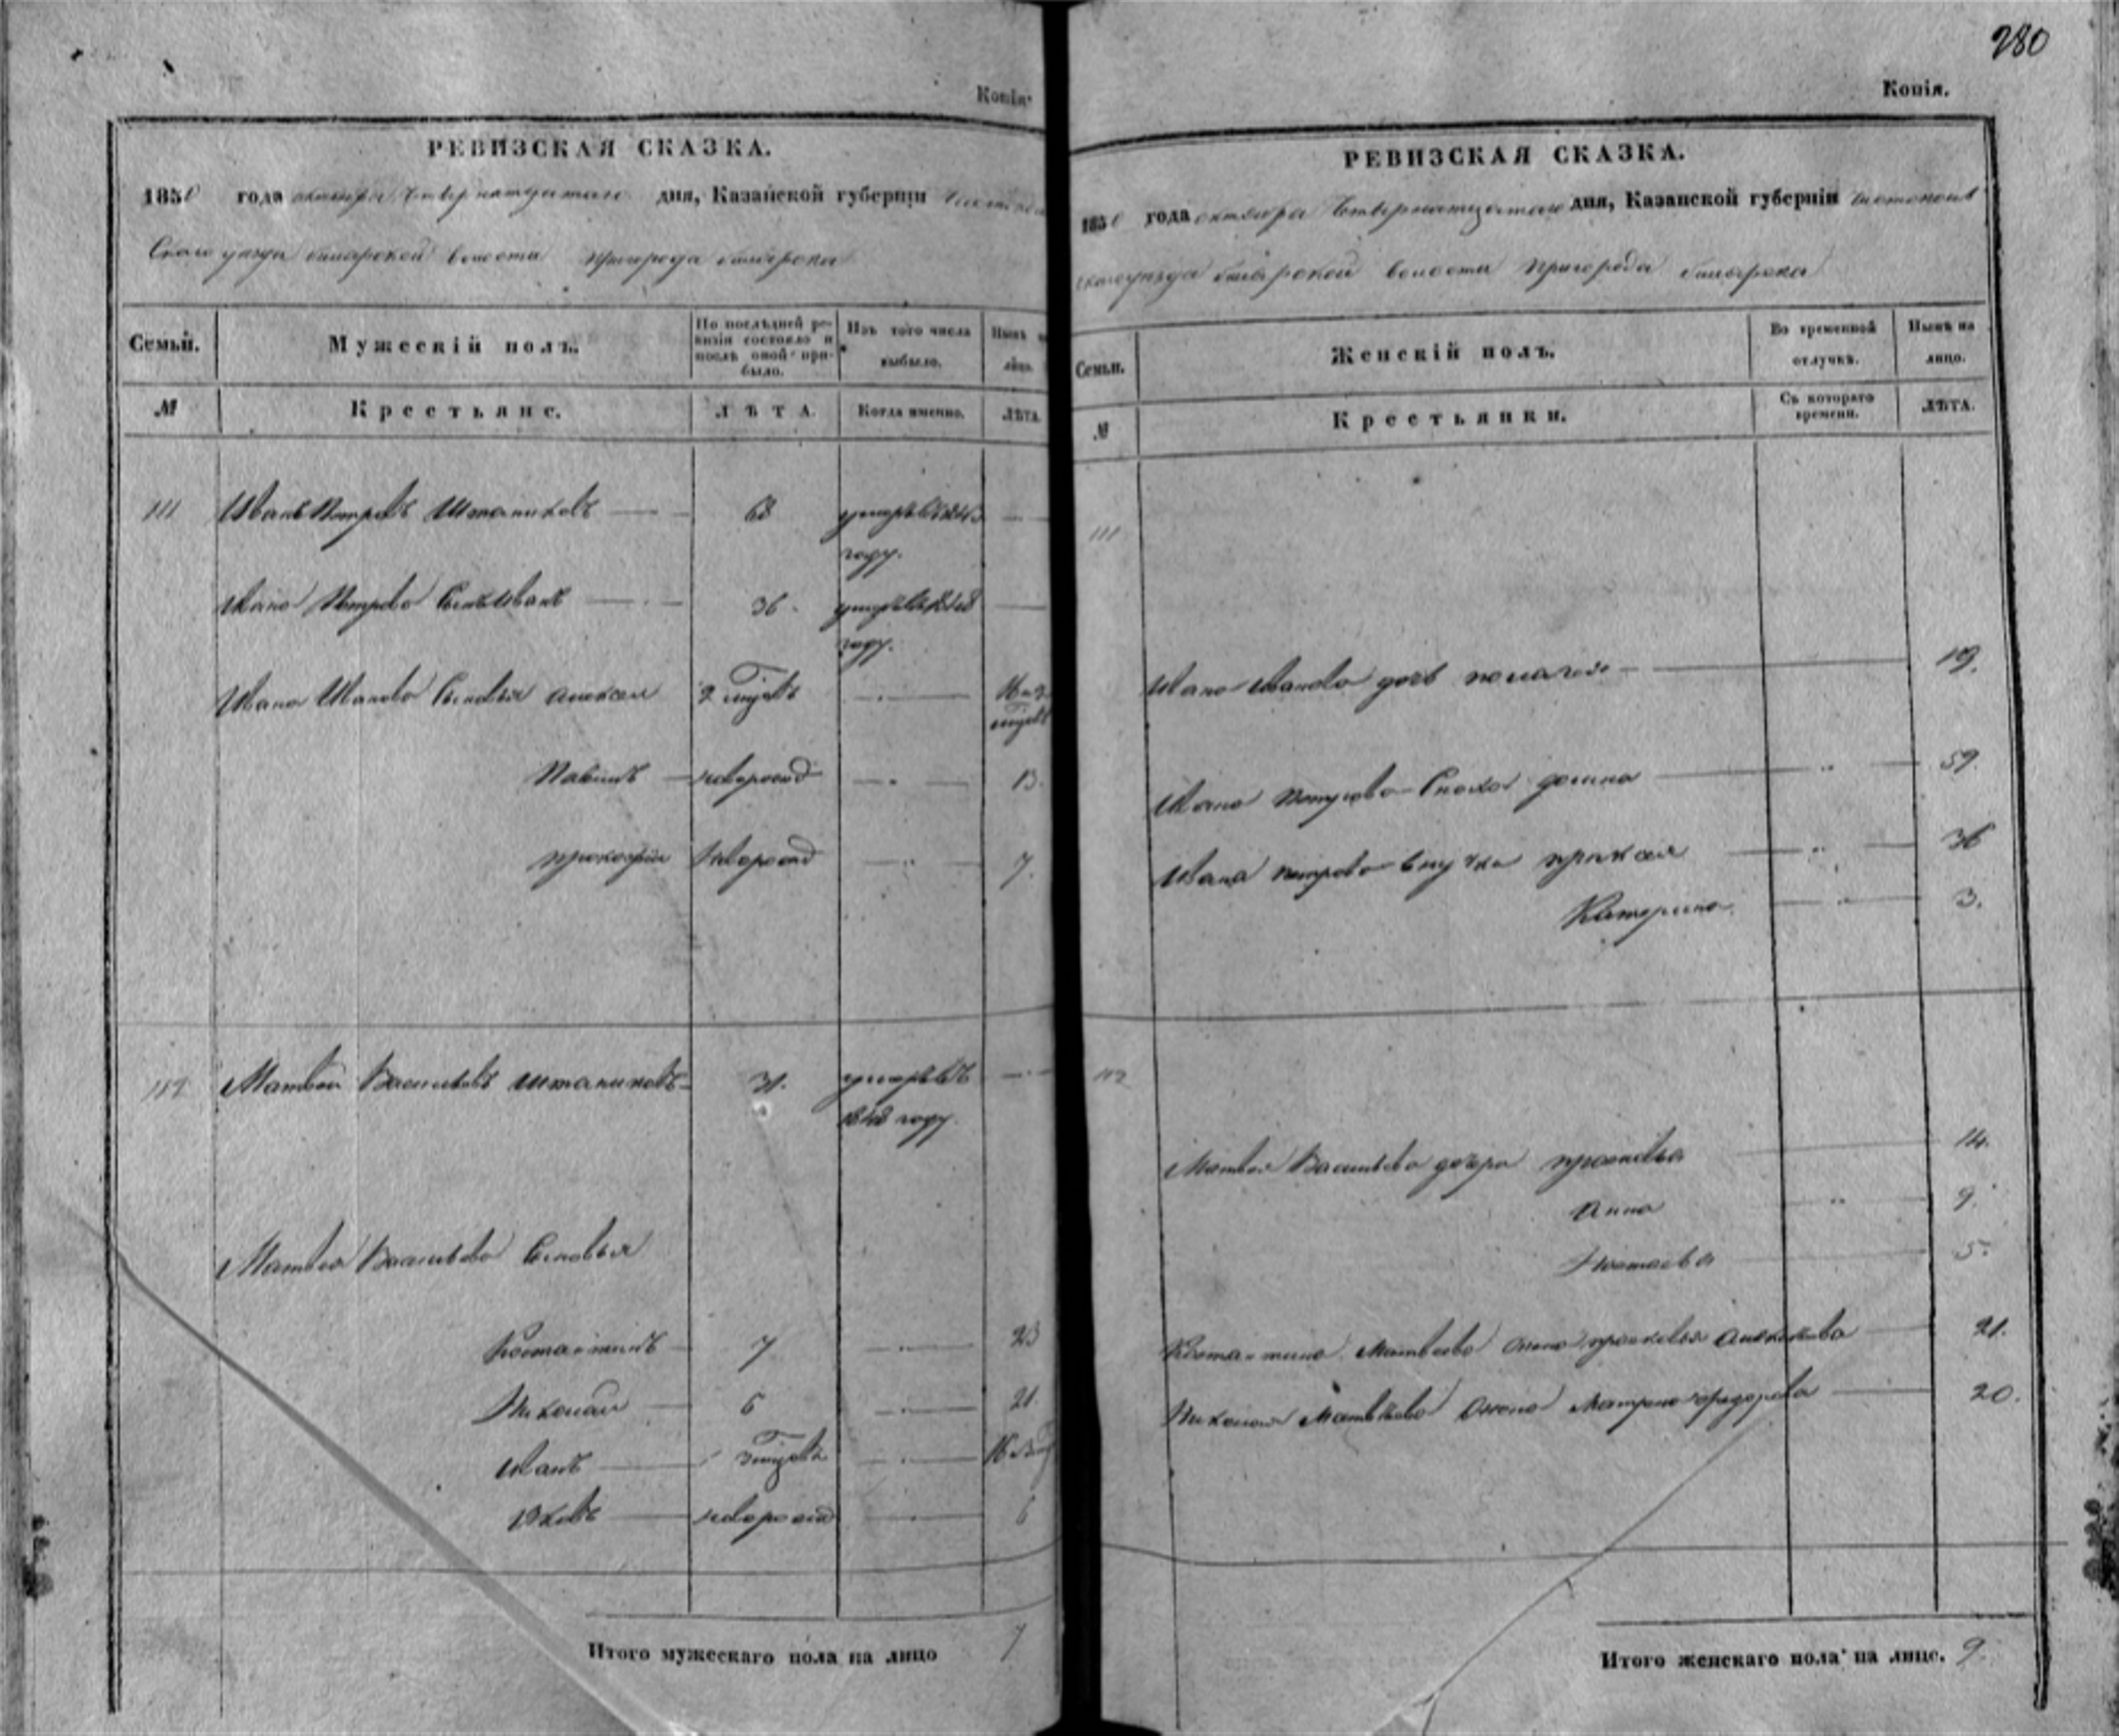 280
Копія.
РЕВИЗСКАЯ СКАЗКА.
1850 года октября Четырнатцатаго дня, Казанской губерніи
Скаго уезда билярской волости Пригорода билярска
Семьи.
Мужескій полъ.
По послѣдней ре-
визіи состояло и
послѣ оной при-
было.
Изъ того числа
выбыло.
Нынѣ на
лицо.
№
Крестьяне.
ЛѢТА.
Когда именно.
ЛѢТА.
111 Иванъ Петровъ Штаниковъ 68 умръ въ 1843
году.
Ивана Петрова Сынъ Иванъ 36 умръ въ 1848
году.
Ивана Иванова Сыновья алексей 2
Павилъ новорожд 13.
прокофiи новорожд 7.
112 Матвей Васильевъ Штаниковъ 31. умръ въ
1848 году.
Матвея Васильева Сыновья
Костантинъ 7 23
Николай 6 21.
Иванъ
Яковъ новорожд 6
Итого мужескаго пола на лицо 7
Копія.
РЕВИЗСКАЯ СКАЗКА.
1850 года октября Четырнатцатаго дня, Казанской губерніи Чистополь
скаго уезда билярской волости Пригорода билярска
Семьи.
Женскій полъ.
Во временной
отлучкѣ.
Нынѣ на
лицо.
№
Крестьянки.
Съ котораго
времени.
ЛѢТА.
111
Ивана Иванова дочь пелагея 19.
Ивана Петрова Сноха домна 59.
Ивана петрова внучка 36
Катерина 3.
112
Матвея Васильева дочери прасковья 14.
Анна 9.
Настасья 5.
Костантина Матвеева жена прасковья 21.
Николая Матвеева жена Матрена федорова 20.
Итого женскаго пола на лице. 9